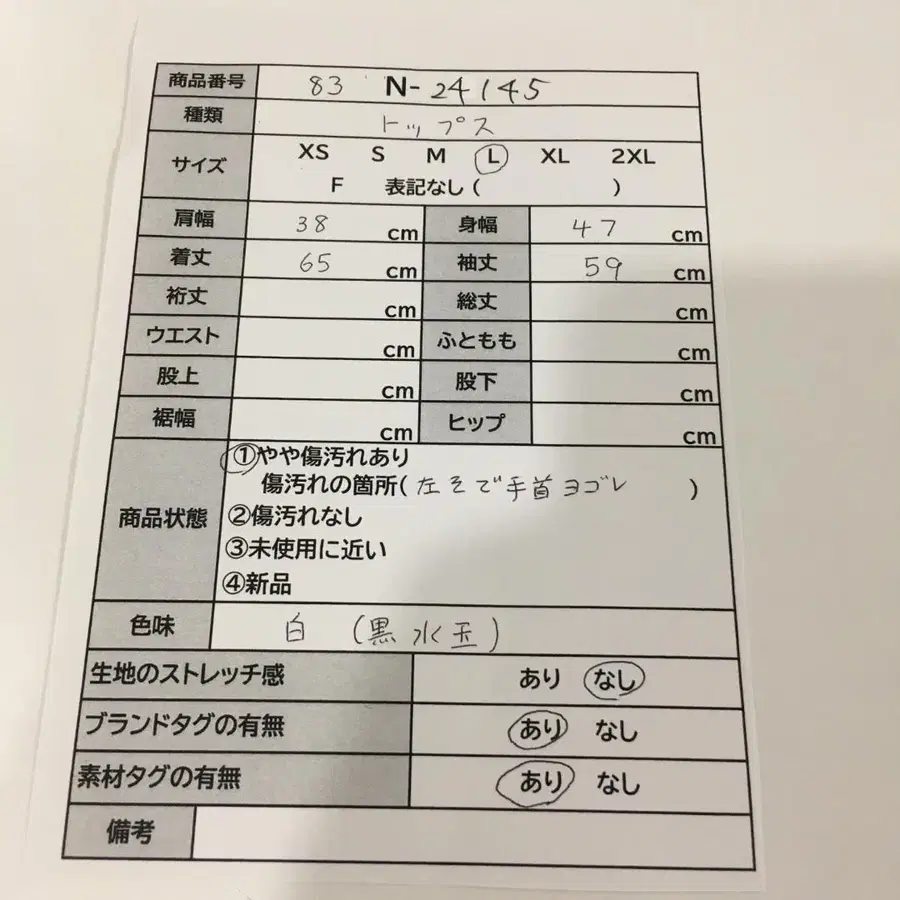 商品番号 83 N-24145
種類 トップス
サイズ XS S M L XL 2XL
F 表記なし( )
肩幅 38 cm 身幅 47 cm
着丈 65 cm 袖丈 59 cm
裄丈 cm 総丈 cm
ウエスト cm ふともも cm
股上 cm 股下 cm
裾幅 cm ヒップ cm
商品状態 ①やや傷汚れあり
傷汚れの箇所(左そで手首ヨゴレ )
②傷汚れなし
③未使用に近い
④新品
色味 白 (黒水玉)
生地のストレッチ感 あり なし
ブランドタグの有無 あり なし
素材タグの有無 あり なし
備考